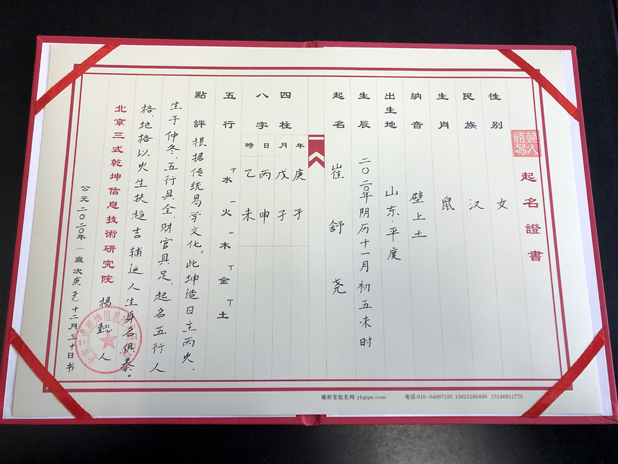 起名證書
性别 女
民族 汉
生肖 鼠
納音 壁上土
出生地 山东·平度
生辰 二〇二〇年阴历十一月初五未时
起名 崔舒尧
四柱八字
年 庚子
月 戊子
日 丙申
時 乙未
五行 丅水 一火 一木 丅金 丅土
點評 根据传统易学文化，此坤造日主丙火，
生于仲冬，五行具全，财官具足，起名五行人
格、地格以火生扶趋吉辅运人生身名俱泰。
北京三式乾坤信息技術研究院 楊懿人
公元二〇二〇年（歲次庚子）十二月三十日书
雍和宫起名网:yhgqm.com 电话:010-64067195 13021298499 13146811773